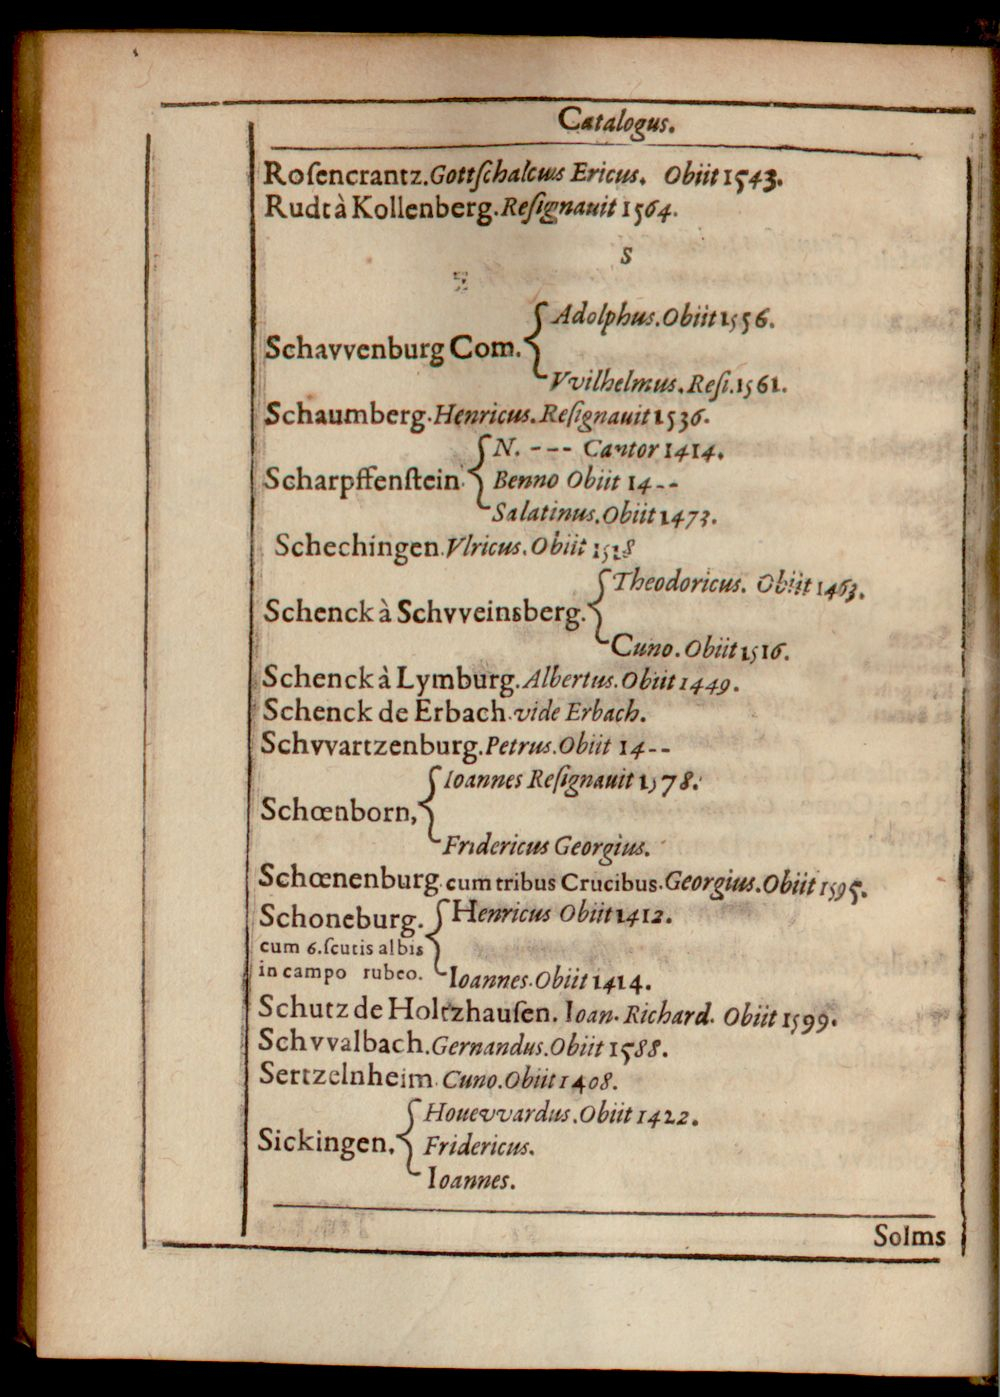 Catalogus.
Roſencrantz. Gottſchalcus Ericus. Obiit 1543.
Rudt à Kollenberg. Reſignauit 1564.
S
Adolphus. Obiit 1556.
Schavvenburg Com.
Vvilhelmus. Reſi. 1561.
Schaumberg. Henricus. Reſignauit 1536.
N. --- Cantor 1414.
Scharpffenſtein. Benno Obiit 14--
Salatinus. Obiit 1473.
Schechingen. Vlricus. Obiit 1518
Theodoricus. Obiit 1463.
Schenck à Schvveinsberg.
Cuno. Obiit 1516.
Schenck à Lymburg. Albertus. Obiit 1449.
Schenck de Erbach. vide Erbach.
Schvvartzenburg. Petrus. Obiit 14--
Ioannes Reſignauit 1578.
Schœnborn,
Fridericus Georgius.
Schœnenburg cum tribus Crucibus. Georgius. Obiit 1595.
Schoneburg. Henricus Obiit 1412.
cum 6. ſcutis albis
in campo rubeo. Ioannes. Obiit 1414.
Schutz de Holtzhauſen. Ioan. Richard. Obiit 1599.
Schvvalbach. Gernandus. Obiit 1588.
Sertzelnheim. Cuno. Obiit 1408.
Houevvardus. Obiit 1422.
Sickingen, Fridericus.
Ioannes.
Solms